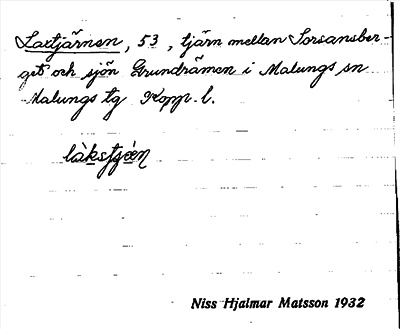 Laxtjärnen, 53, tjärn mellan Sorsansber-
get och sjön Grundrämen i Malungs sn
Malungs tg Kopp. l.
låkstjǿen
Niss Hjalmar Matsson 1932